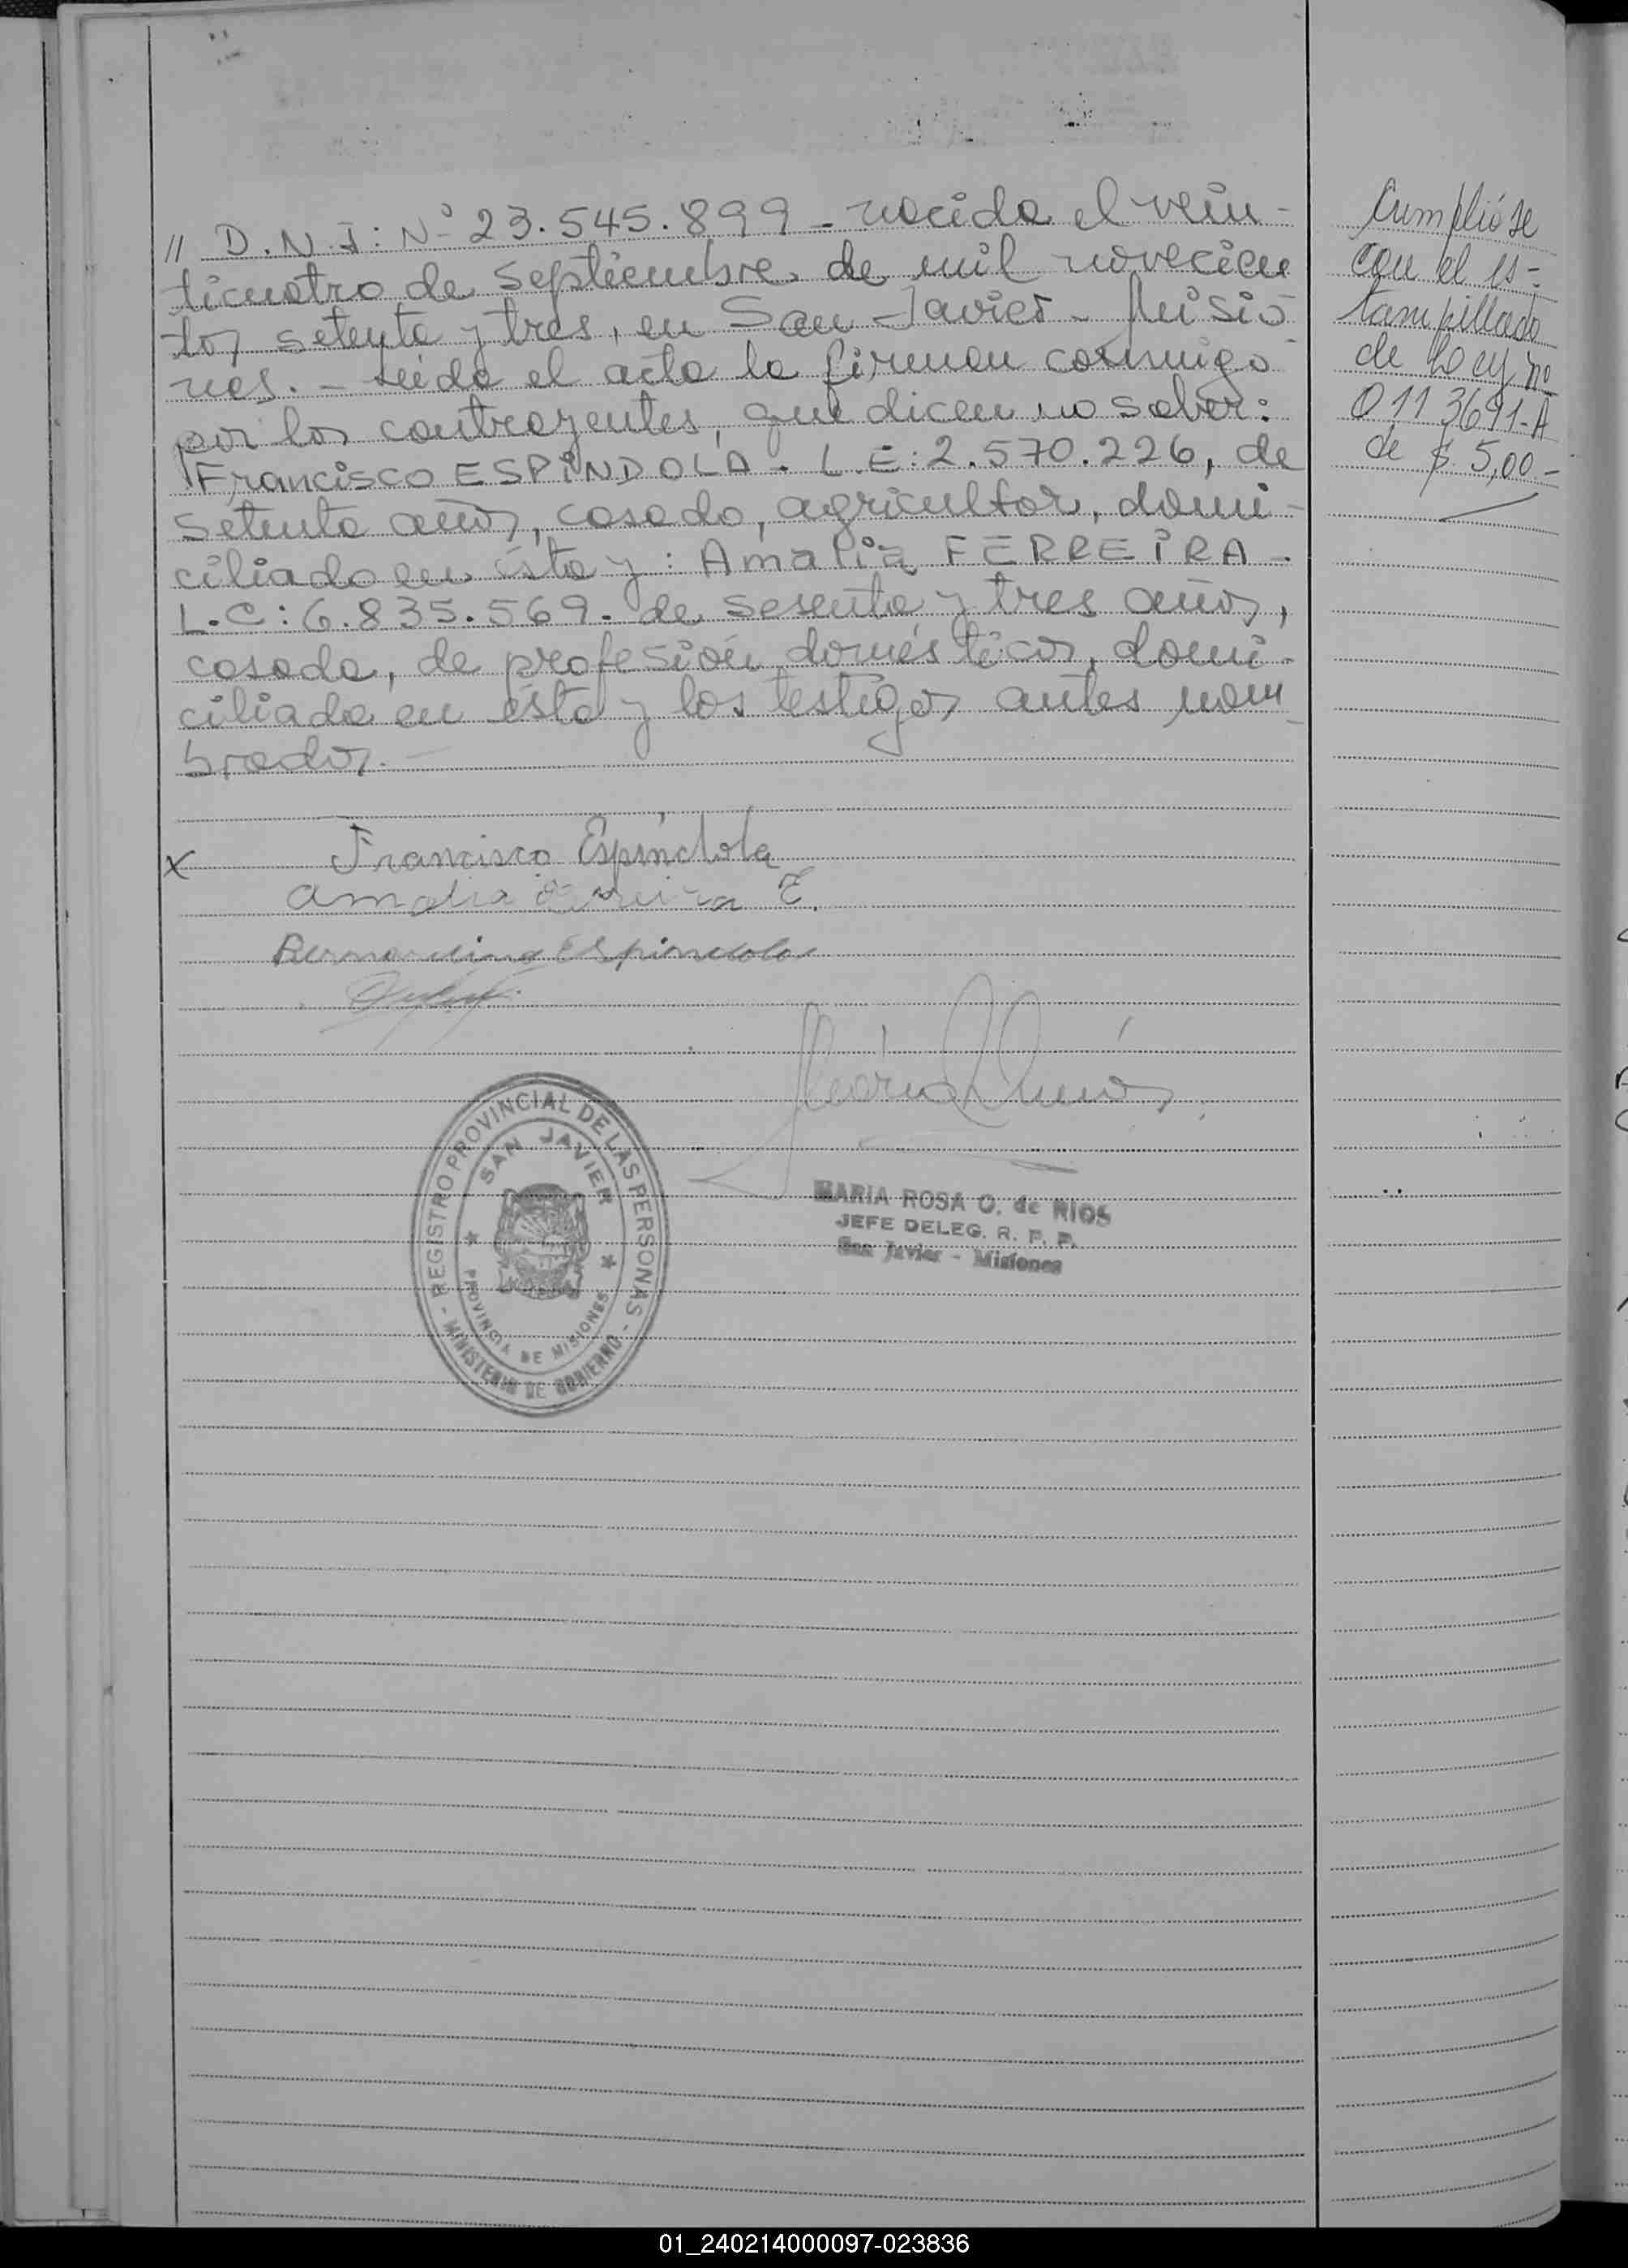 // D.N.I: Nº 23.545.899 - nacida el vein-
ticuatro de Septiembre de mil novecien
tos setenta y tres, en San Javier - Misio-
nes. - Leída el acta la firman conmigo
por los contrayentes, que dicen no saber:
Francisco ESPINDOLA. L.E: 2.570.226, de
setenta años, casado, agricultor, domi-
ciliado en ésta y: Amalia FERREIRA -
L.C: 6.835.569. de sesenta y tres años,
casada, de profesión domésticos, domi-
ciliada en ésta y los testigos antes nom-
brados. -
x Francisco Espíndola
Amalia Ferreira E.
Bernardino Espindola
REGISTRO PROVINCIAL DE LAS PERSONAS - MINISTERIO DE GOBIERNO -
SAN JAVIER
PROVINCIA DE MISIONES
MARIA ROSA O. de RIOS
JEFE DELEG. R. P. P.
San Javier - Misiones
Cumplióse
con el es-
tampillado
de Ley nº
0113691-A
de $ 5,00.-
01_240214000097-023836